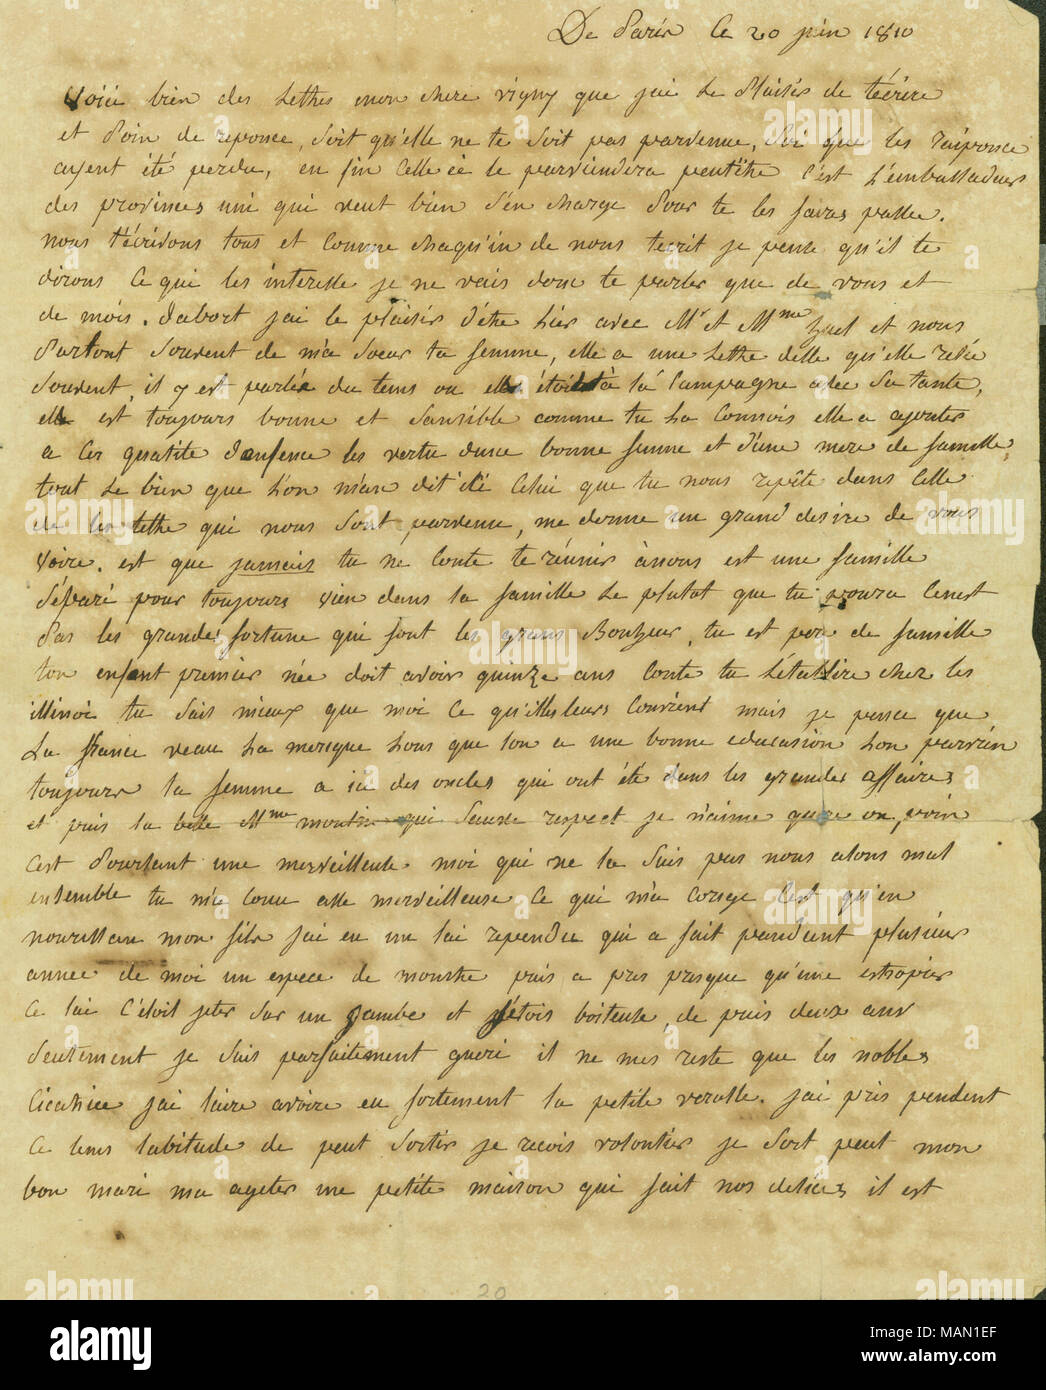 De Paris le 20 juin 1810
Voici bien des Lettres mon chere vigny que jai Le Plaisir de técrire
et Poin de reponce, Soit qu'elle ne te Soit pas parvenue, Soi que les raiponce
ayent été perdu, en fin Celle ci te parviendera peutêtre C'est L'embassadeur
des provinces uni qui veut bien S'en charge Pour te les faires passe.
nous t'écrivons tous et Comme chaqu'in de nous tecrit je pense qu'il te
dirons Ce qui les interesse je ne vais donc te parler que de vous et
de mois. Dabort jai le plaisir d'être Lier avec Mr et Mme et nous
Parlont Souvent de ma Soeur ta femme, elle a une Lettre delle qu'elle relie
Souvent, il y est parlée du tems ou elle étoit à la Campagne avec Sa tante,
elle est toujours bonne et Sansible comme tu La Connois elle a ajouter
a Ces qualité d'enfence les vertu dune bonne femme et d'une mere de famille,
tout Le bien que L'on m'an dit été Celui que tu nous repéte dans Celle
de tes lettre qui nous Sont parvenue, me donne un grand desire de vous
Voire. est que jamais tu ne Conte te réunir ànous est une famille
Séparé pour toujours Vien dans ta famille Le plutot que tu poura Cenest
Pas les grandes fortune qui font les grans Bonheur, tu est pere de famille
ton enfant premier née doit avoir quinze ans Conte tu L'établire cher les
illinoi tu Sais mieux que moi Ce qu'illeleurs Convient mais je pense que
La france veau La merique Lors que lon a une bonne education Lon parvien
toujours ta femme a ici des oncles qui ont été dans les grandes affaires
et puis ta belle Mme qui Sause respect je n'aime quere on, voin
Cest Pourtant une merveilleuse moi qui ne la Suis pas nous alons mal
ensemble tu ma Conu asse merveilleuse Ce qui ma Corige C'est qu'en
nourissan mon fils Jai eu un lai rependu qui a fait pandent plusieurs
annee de moi un espece de monstre puis a pres presque qu'une estropier
Ce lai C'étoit jeter Sur un jambe et jétois boiteuse, de puis deux ans
Seulement je Suis parfaitement gueri il ne mes reste que les nobles
Cicatrice jai laire avoire eu fortement la petite verolle. Jai pris pendent
Ce tems labitude de peut Sortir je recois volontier je Sort peut mon
bon mari ma ageter une petite maison qui fait nos delices il est
20
alamy
MAN1EF
www.alamy.com